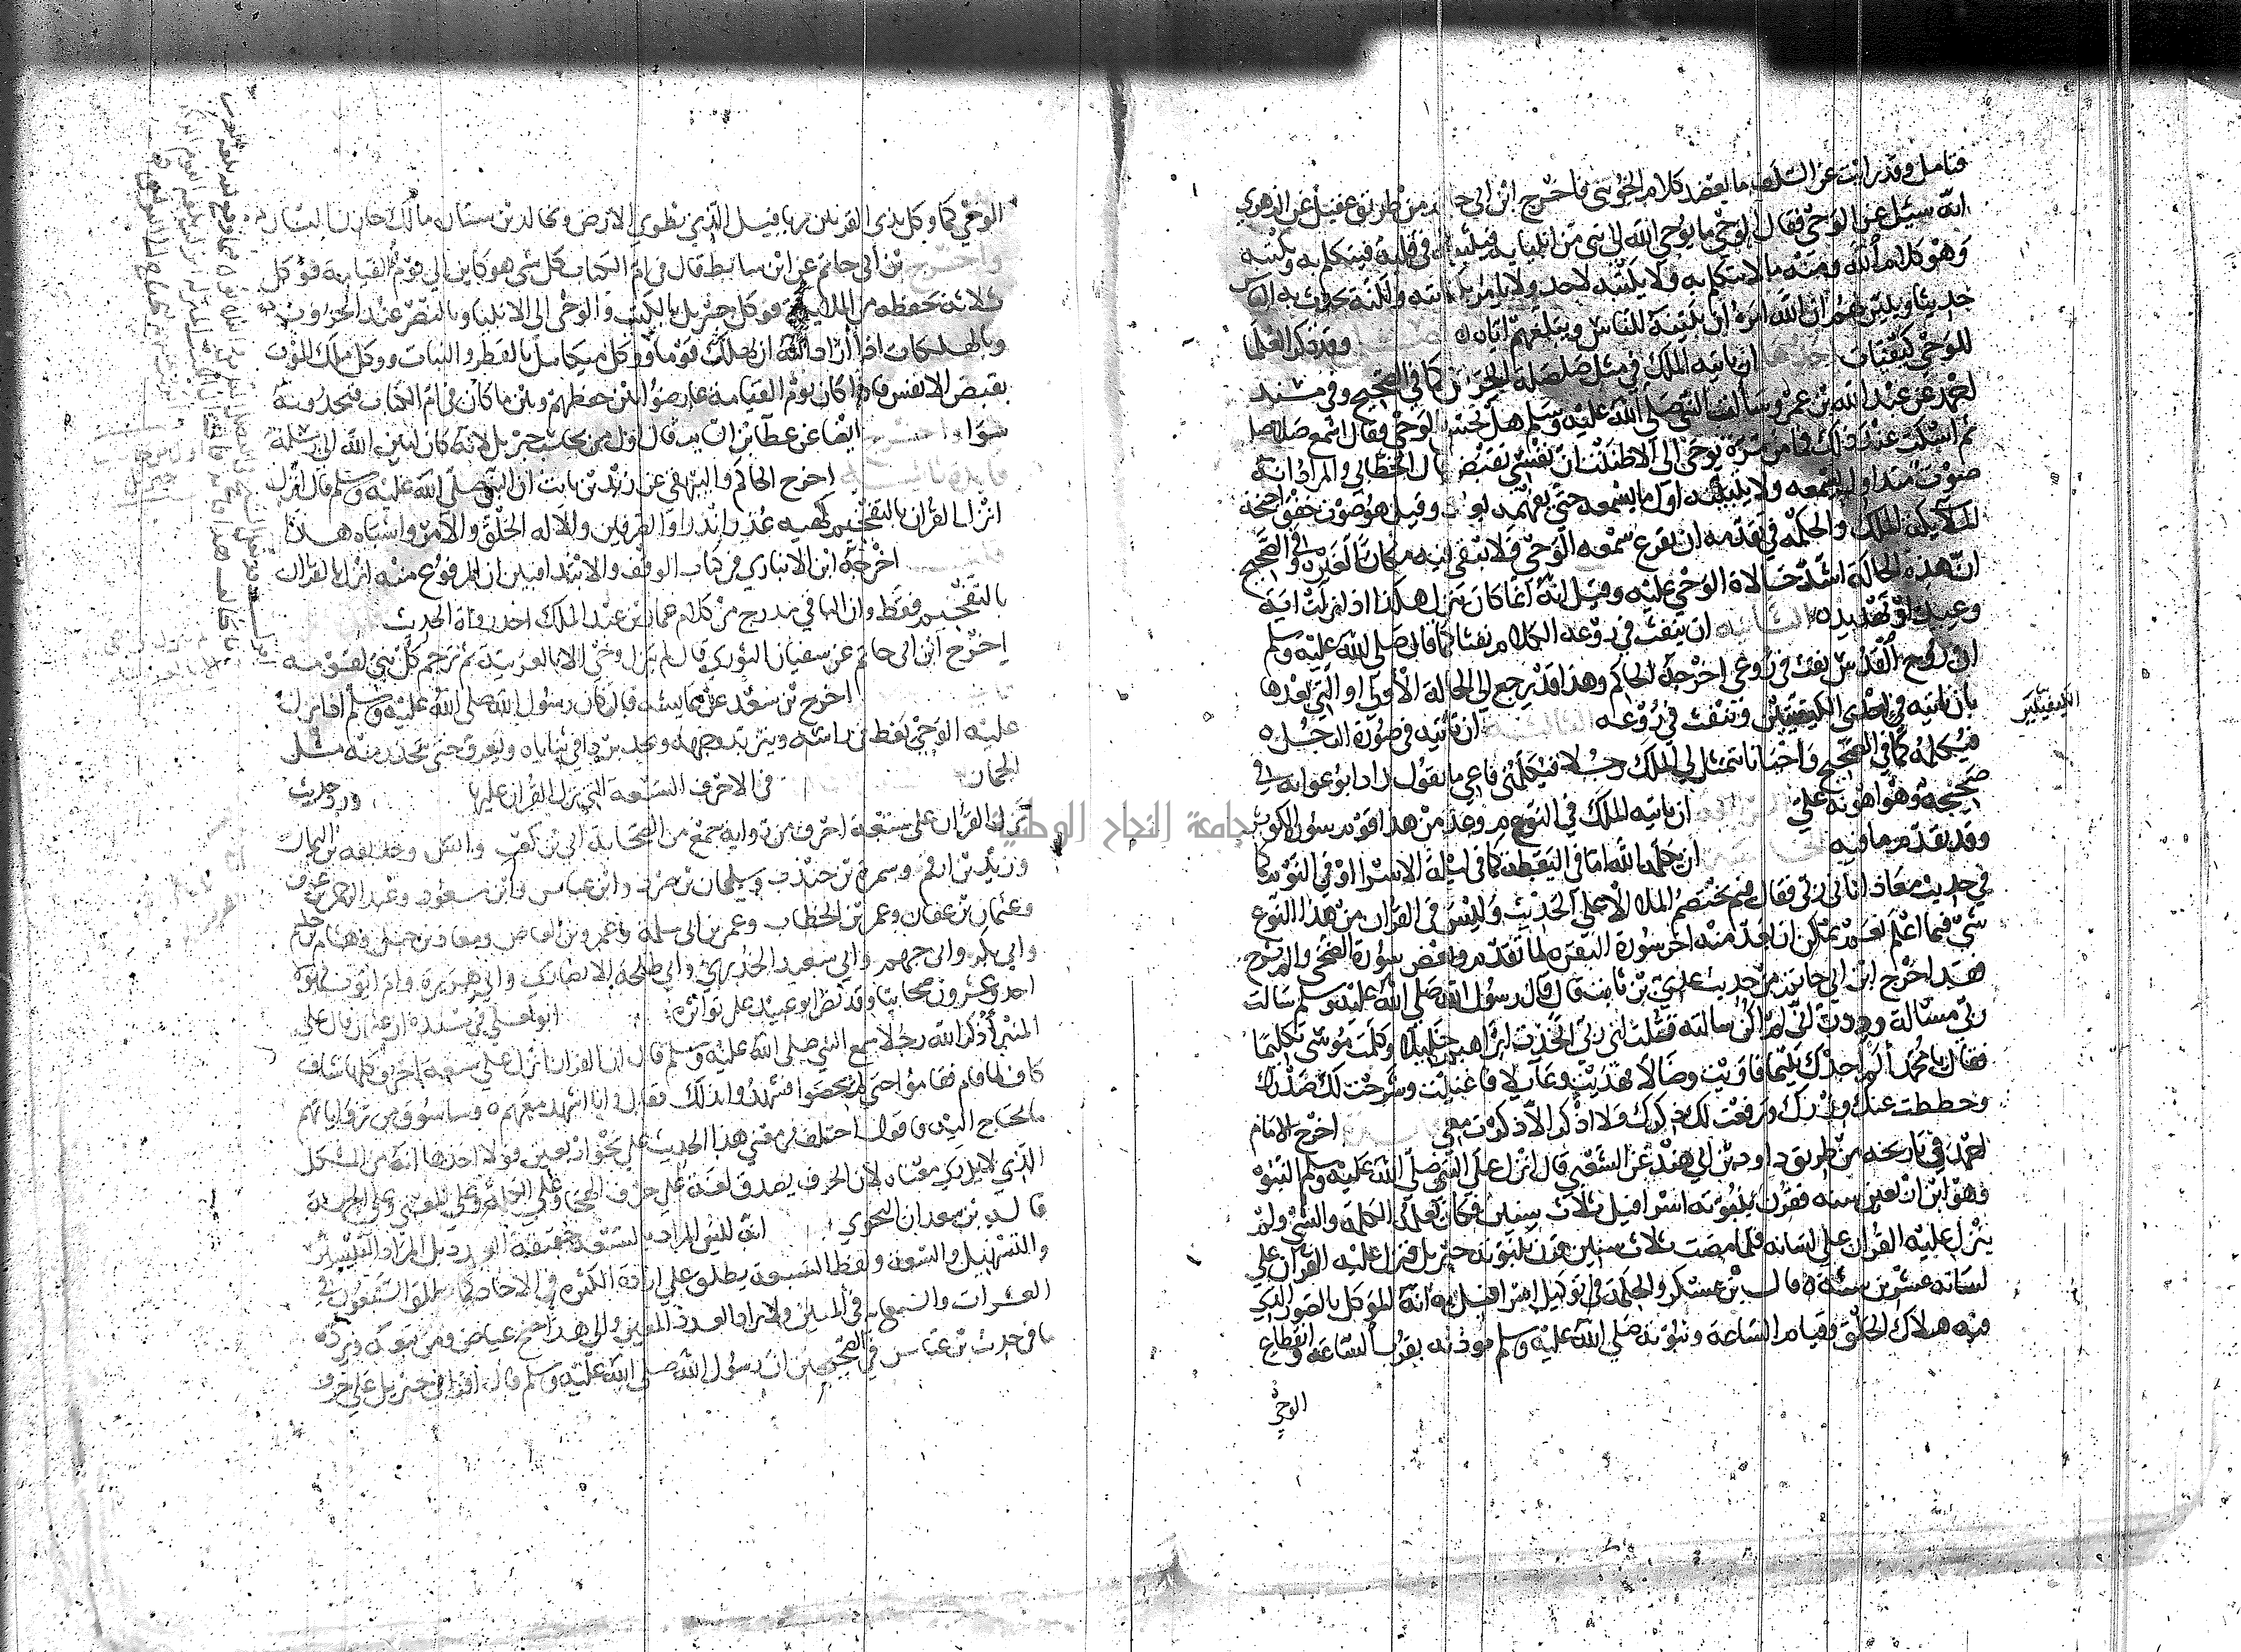 فتامل وقد رايت عن السلف ما يعضد كلام الجويني فاخرج ابن ابي حاتم من طريق عقيل عن الزهري
انه سئل عن الوحي فقال الوحي ما يوحي الله الى نبي من انبيايه فيثبته في قلبه فيتكلم به ويكتبه
وهو كلام الله ومنه ما لا يتكلم به ولا يكتبه لاحد ولا يامر بكتابته ولكنه يحدث به الناس
حديثا ويبين لهم ان الله امره ان يبينه للناس ويبلغهم اياه وقد ذكر العلما
للوحي كيفيات احدها ان ياتيه الملك في مثل صلصلة الجرس كما في الصحيح وفي مسند
احمد عن عبد الله بن عمرو سألت النبي صلى الله عليه وسلم هل تحس بالوحي فقال اسمع صلاصل
ثم اسكت عند ذلك فما من مرة يوحى الي الا ظننت ان نفسي تقبض قال الخطابي والمراد انه
صوت متدارك يسمعه ولا يثبته اول ما يسمعه حتى يفهمه بعد وقيل هو صوت خفق اجنحة
الملايكة الملك والحكمة في تقدمه ان يفرغ سمعه الوحي فلا يبقى فيه مكانا لغيره وفي الصحيح
ان هذه الحالة اشد حالات الوحي عليه وقيل انه انما كان ينزل هكذا اذا نزلت اية
وعيد او تهديد الثانية ان ينفث في روعه الكلام نفثا كما قال صلى الله عليه وسلم
ان روح القدس نفث في روعي اخرجه الحاكم وهذا قد يرجع الى الحالة الاولى او التي بعدها
بان ياتيه في احدى الكيفيتين وينفث في روعه الثالثة ان ياتيه في صورة الرجل
الكيفيتين
فيكلمه كما في الصحيح واحيانا يتمثل لي الملك رجلا فيكلمني فاعي ما يقول زاد ابو عوانه في
صحيحه وهو اهونه علي ان ياتيه الملك في النوم وعد من هذا قوم سورة الكوثر
وقد تقدم ما فيه ان يكلمه الله اما في اليقظة كما في ليلة الاسرا او في النوم كما
في حديث معاذ اتاني ربي فقال فيم يختصم الملا الاعلى الحديث وليس في القران من هذا النوع
شي فيما اعلم نعم يمكن ان يعد منه اخر سورة البقرة لما تقدم وبعض سورة الضحى والم نشرح
فقد اخرج ابن ابي حاتم من حديث عدي بن ثابت قال قال رسول الله صلى الله عليه وسلم سالت
ربي مسألة وددت اني لم اكن سالته فقلت اي ربي اتخذت ابراهيم خليلا وكلمت موسى تكليما
فقال يا محمد الم اجدك يتيما فاويت وضالا فهديت وعايلا فاغنيت وشرحت لك صدرك
وحططت عنك وزرك ورفعت لك ذكرك فلا اذكر الا ذكرت معي اخرج الامام
احمد في تاريخه من طريق داود بن ابي هند عن الشعبي قال انزل على النبي صلى الله عليه وسلم النبوة
وهو ابن اربعين سنه فقرن بنبوته اسرافيل ثلاث سنين فكان يعلمه الكلمة والشي ولم
ينزل عليه القران على لسانه فلما مضت ثلاث سنين قرن بنبوته جبريل فنزل عليه القران على
لسانه عشرين سنة قال بن عسكر والحكمة في توكيل اسرافيل به انه الموكل بالصور الذي
فيه هلاك الخلق وقيام الساعة ونبوته صلى الله عليه وسلم موذنه بقرب الساعة وانقطاع
الوحي
الوحي كما وكل بذي القرنين ريافيل الذي يطوي الارض وبخالد بن سنان مالك خازن النار
واخرج بن ابي حاتم عن ابن سابط قال في ام الكتاب كل شي هو كاين الى يوم القيامة فوكل
ثلاثة بحفظه من الملايكة فوكل جبريل بالكتب والوحي الى الانبيا وبالنصر عند الحروب
وبالهلكات اذا اراد الله ان يهلك قوما ووكل ميكايل بالقطر والنبات ووكل ملك الموت
بقبض الانفس فاذا كان يوم القيامة عارضوا بين حفظهم وبين ما كان في ام الكتاب فيجدونه
سوا واخرج ايضا عن عطا بن السايب قال اول من يحاسب جبريل لانه كان امين الله الى رسله
اخرج الحاكم والبيهقي عن زيد بن ثابت ان النبي صلى الله عليه وسلم قال انزل
انزل القران بالتفخيم كهيه عذرا نذرا والصدفين والا له الخلق والامر واشباه هذا
اخرجه ابن الانباري في كتاب الوقف والابتدا فبين ان المرفوع منه انزل القران
بالتفخيم فقط وان الباقي مدرج من كلام عمار بن عبد الملك احد رواة الحديث
اخرج ابن ابي حاتم عن سفيان الثوري قال لم ينزل وحي الا بالعربية ثم ترجم كل نبي لقومه
اخرج بن سعد عن عايشه قالت كان رسول الله صلى الله عليه وسلم اذا نزل
عليه الوحي يغط في راسه ويتربد وجهه ويجد بردا في ثناياه ويعرق حتى يتحدر منه مثل
الجمان في الاحرف السبعة التي نزل القران عليها ورد حديث
نزل القران على سبعة احرف من رواية جمع من الصحابة ابي بن كعب وانس وحذيفه بن اليمان
وزيد بن ارقم وسمرة بن جندب وسليمان بن صرد وابن عباس وابن مسعود وعبد الرحمن بن عوف
وعثمان بن عفان وعمر بن الخطاب وعمر بن ابي سلمة وعمرو بن العاص ومعاذ بن جبل وهشام بن حكيم
وابي بكرة وابي جهم وابي سعيد الخدري وابي طلحة الانصاري وابي هريرة وام ايوب فهولا
احد وعشرون صحابيا وقد نص ابو عبيد على تواتره ابو يعلى في مسنده ان عثمان قال على
المنبر أذكر الله رجلا سمع النبي صلى الله عليه وسلم قال ان القران انزل على سبعة احرف كلها شاف
كاف لما قام فقاموا حتى لم يحصوا فشهدوا بذلك فقال وانا اشهد معهم وساسوق من رواياتهم
ما يحتاج اليه فاقول اختلف في معنى هذا الحديث على نحو اربعين قولا احدها انه من المشكل
الذي لا يدرى معناه لان الحرف يصدق لغة على حرف الهجا وعلى الكلمة وعلى المعنى وعلى الجهة
قاله بن سعدان النحوي انه ليس المراد بالسبعة حقيقة العدد بل المراد التيسير
والتسهيل والسعة ولفظ السبعة يطلق على ارادة الكثرة في الاحاد كما يطلق السبعون في
العشرات والسبعمايه في المئين ولا يراد العدد المعين والى هذا جنح عياض ومن تبعه ويرده
ما في حديث بن عباس في الصحيحين ان رسول الله صلى الله عليه وسلم قال اقراني جبريل على حرف
جامعة النجاح الوطنية